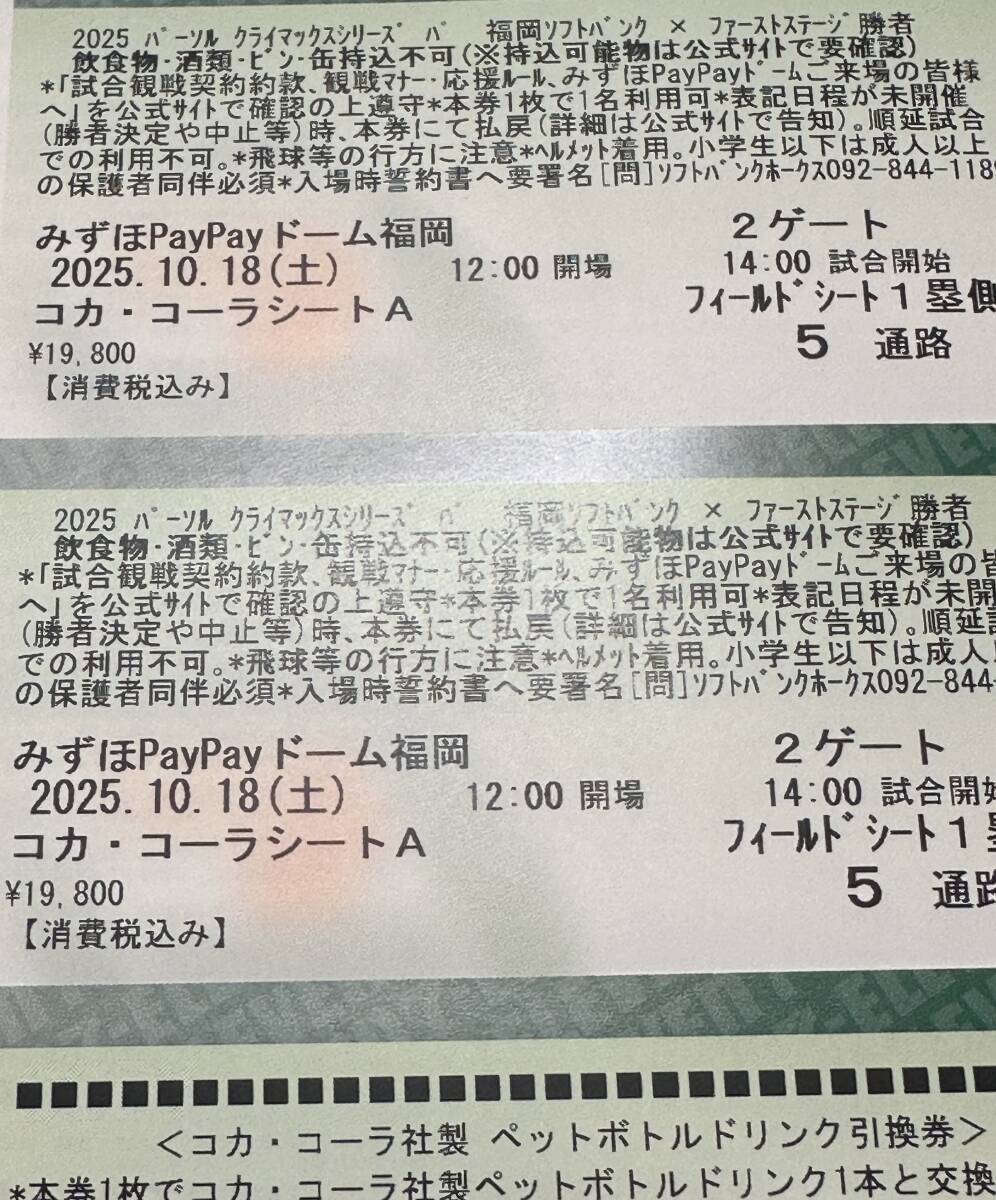 2025 パーソル クライマックスシリーズ パ 福岡ソフトバンク × ファーストステージ勝者
飲食物・酒類・ビン・缶持込不可(※持込可能物は公式サイトで要確認)
*「試合観戦契約約款、観戦マナー・応援ルール、みずほPayPayドームご来場の皆様
へ」を公式サイトで確認の上遵守*本券1枚で1名利用可*表記日程が未開催
(勝者決定や中止等)時、本券にて払戻(詳細は公式サイトで告知)。順延試合
での利用不可。*飛球等の行方に注意*ヘルメット着用。小学生以下は成人以上
の保護者同伴必須*入場時誓約書へ要署名[問]ソフトバンクホークス092-844-1189
みずほPayPayドーム福岡 2ゲート
2025.10.18(土) 12:00 開場 14:00 試合開始
コカ・コーラシートA フィールドシート1塁側
¥19,800 5 通路
【消費税込み】
2025 パーソル クライマックスシリーズ パ 福岡ソフトバンク × ファーストステージ勝者
飲食物・酒類・ビン・缶持込不可(※持込可能物は公式サイトで要確認)
*「試合観戦契約約款、観戦マナー・応援ルール、みずほPayPayドームご来場の皆
へ」を公式サイトで確認の上遵守*本券1枚で1名利用可*表記日程が未開
(勝者決定や中止等)時、本券にて払戻(詳細は公式サイトで告知)。順延
での利用不可。*飛球等の行方に注意*ヘルメット着用。小学生以下は成人
の保護者同伴必須*入場時誓約書へ要署名[問]ソフトバンクホークス092-844-
みずほPayPayドーム福岡 2ゲート
2025.10.18(土) 12:00 開場 14:00 試合開始
コカ・コーラシートA フィールドシート1塁
¥19,800 5 通路
【消費税込み】
<コカ・コーラ社製 ペットボトルドリンク引換券>
*本券1枚でコカ・コーラ社製ペットボトルドリンク1本と交換